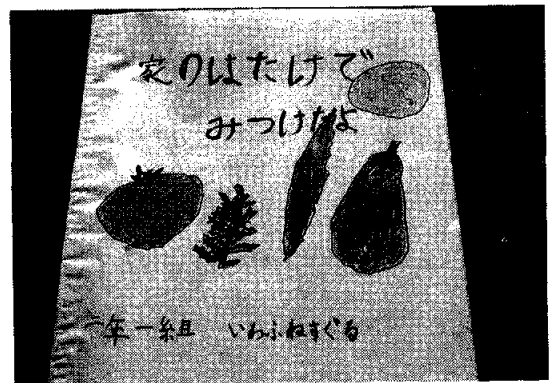 家のはたけで
みつけたよ
二年一組 いわふねすぐる